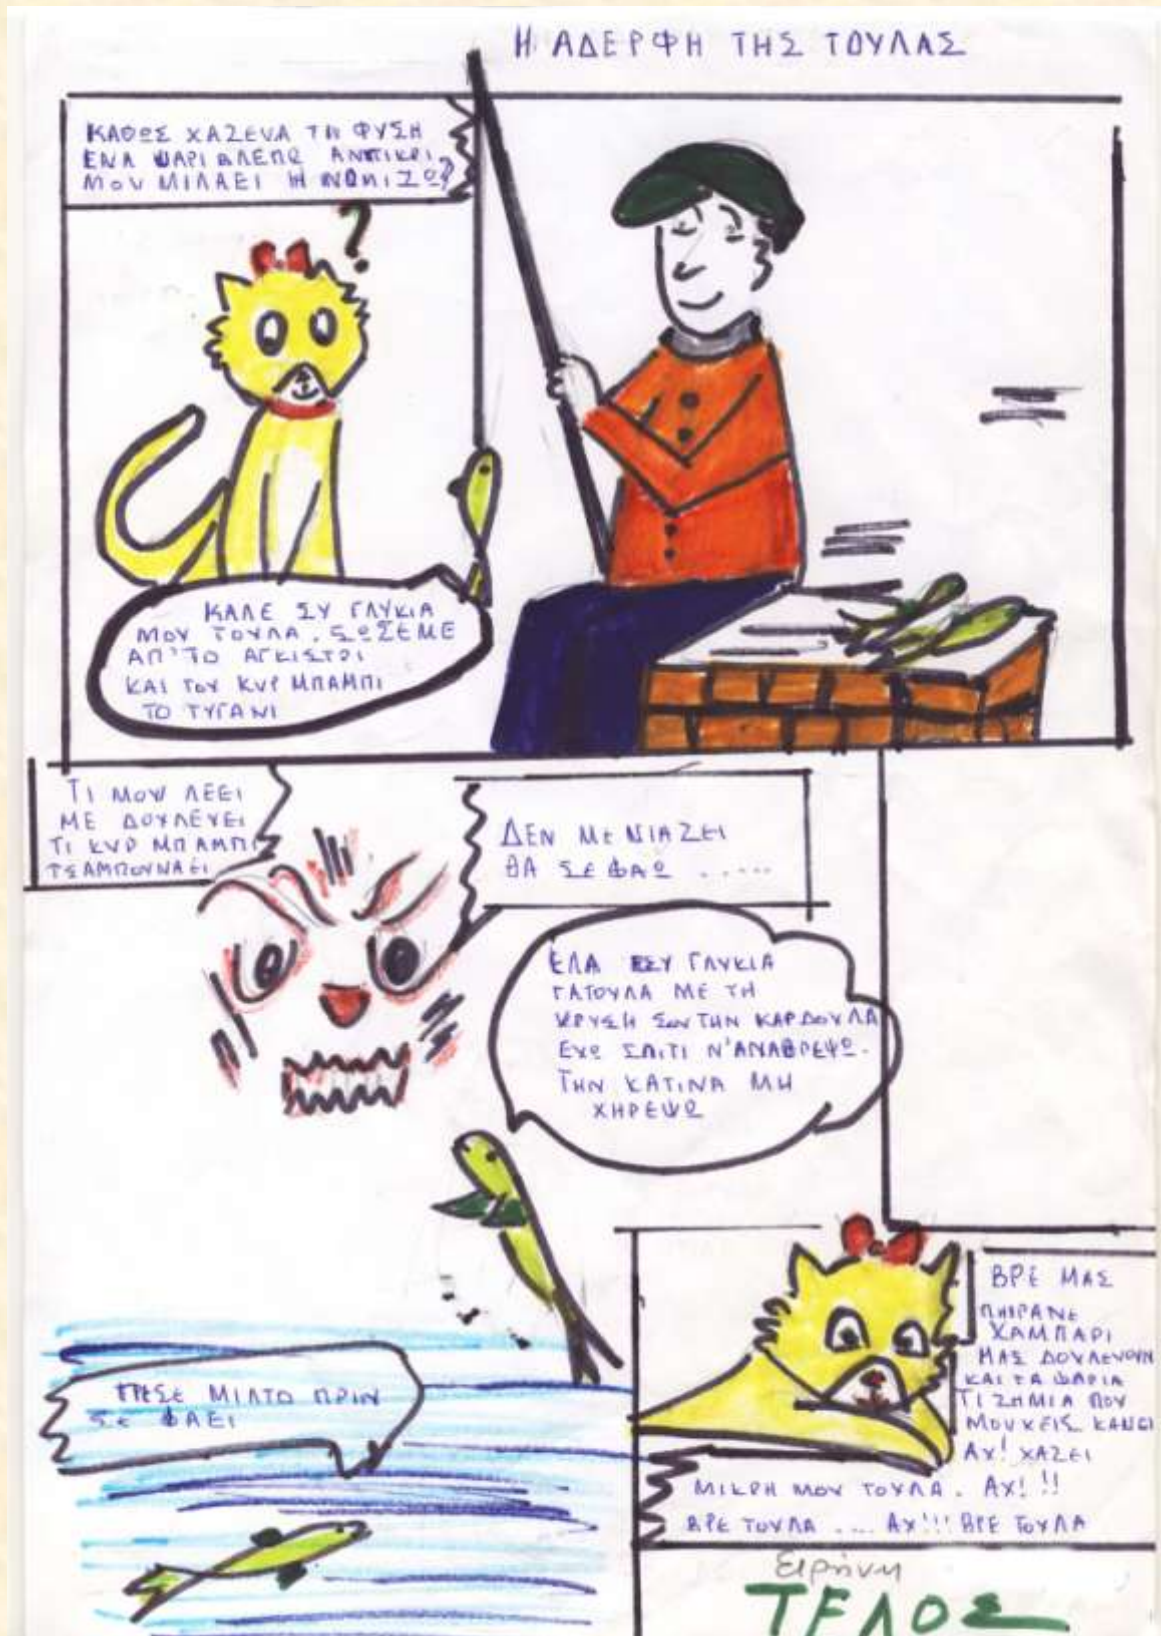 Η ΑΔΕΡΦΗ ΤΗΣ ΤΟΥΛΑΣ
ΚΑΘΩΣ ΧΑΖΕΥΑ ΤΗ ΦΥΣΗ
ΕΝΑ ΨΑΡΙ ΒΛΕΠΩ ΑΝΤΙΚΡΙ
ΜΟΥ ΜΙΛΑΕΙ Η ΝΟΜΙΖΩ?
?
ΚΑΛΕ ΣΥ ΓΛΥΚΙΑ
ΜΟΥ ΤΟΥΛΑ. ΣΩΣΕΜΕ
ΑΠ'ΤΟ ΑΓΚΙΣΤΡΙ
ΚΑΙ ΤΟΥ ΚΥΡ ΜΠΑΜΠΙ
ΤΟ ΤΥΓΑΝΙ
ΤΙ ΜΟΥ ΛΕΕΙ
ΜΕ ΔΟΥΛΕΥΕΙ
ΤΙ ΚΥΡ ΜΠΑΜΠΙ
ΤΣΑΜΠΟΥΝΑΕΙ
ΔΕΝ ΜΕ ΝΙΑΖΕΙ
ΘΑ ΣΕ ΦΑΩ .....
ΕΛΑ ΣΥ ΓΛΥΚΙΑ
ΓΑΤΟΥΛΑ ΜΕ ΤΗ
ΧΡΥΣΗ ΣΟΥ ΤΗΝ ΚΑΡΔΟΥΛΑ
ΕΧΩ ΣΠΙΤΙ Ν'ΑΝΑΘΡΕΨΩ.
ΤΗΝ ΚΑΤΙΝΑ ΜΗ
ΧΗΡΕΨΩ
ΤΡΕΞΕ ΜΙΛΤΟ ΠΡΙΝ
ΣΕ ΦΑΕΙ
ΒΡΕ ΜΑΣ
ΠΗΡΑΝΕ
ΧΑΜΠΑΡΙ
ΜΑΣ ΔΟΥΛΕΥΟΥΝ
ΚΑΙ ΤΑ ΨΑΡΙΑ
ΤΙ ΖΗΜΙΑ ΠΟΥ
ΜΟΥ ΧΕΙΣ ΚΑΝΕΙ
ΑΧ! ΧΑΖΕΙ
ΜΙΚΡΗ ΜΟΥ ΤΟΥΛΑ. ΑΧ! !!
ΒΡΕ ΤΟΥΛΑ .... ΑΧ!!! ΒΡΕ ΤΟΥΛΑ
Ειρήνη
ΤΕΛΟΣ